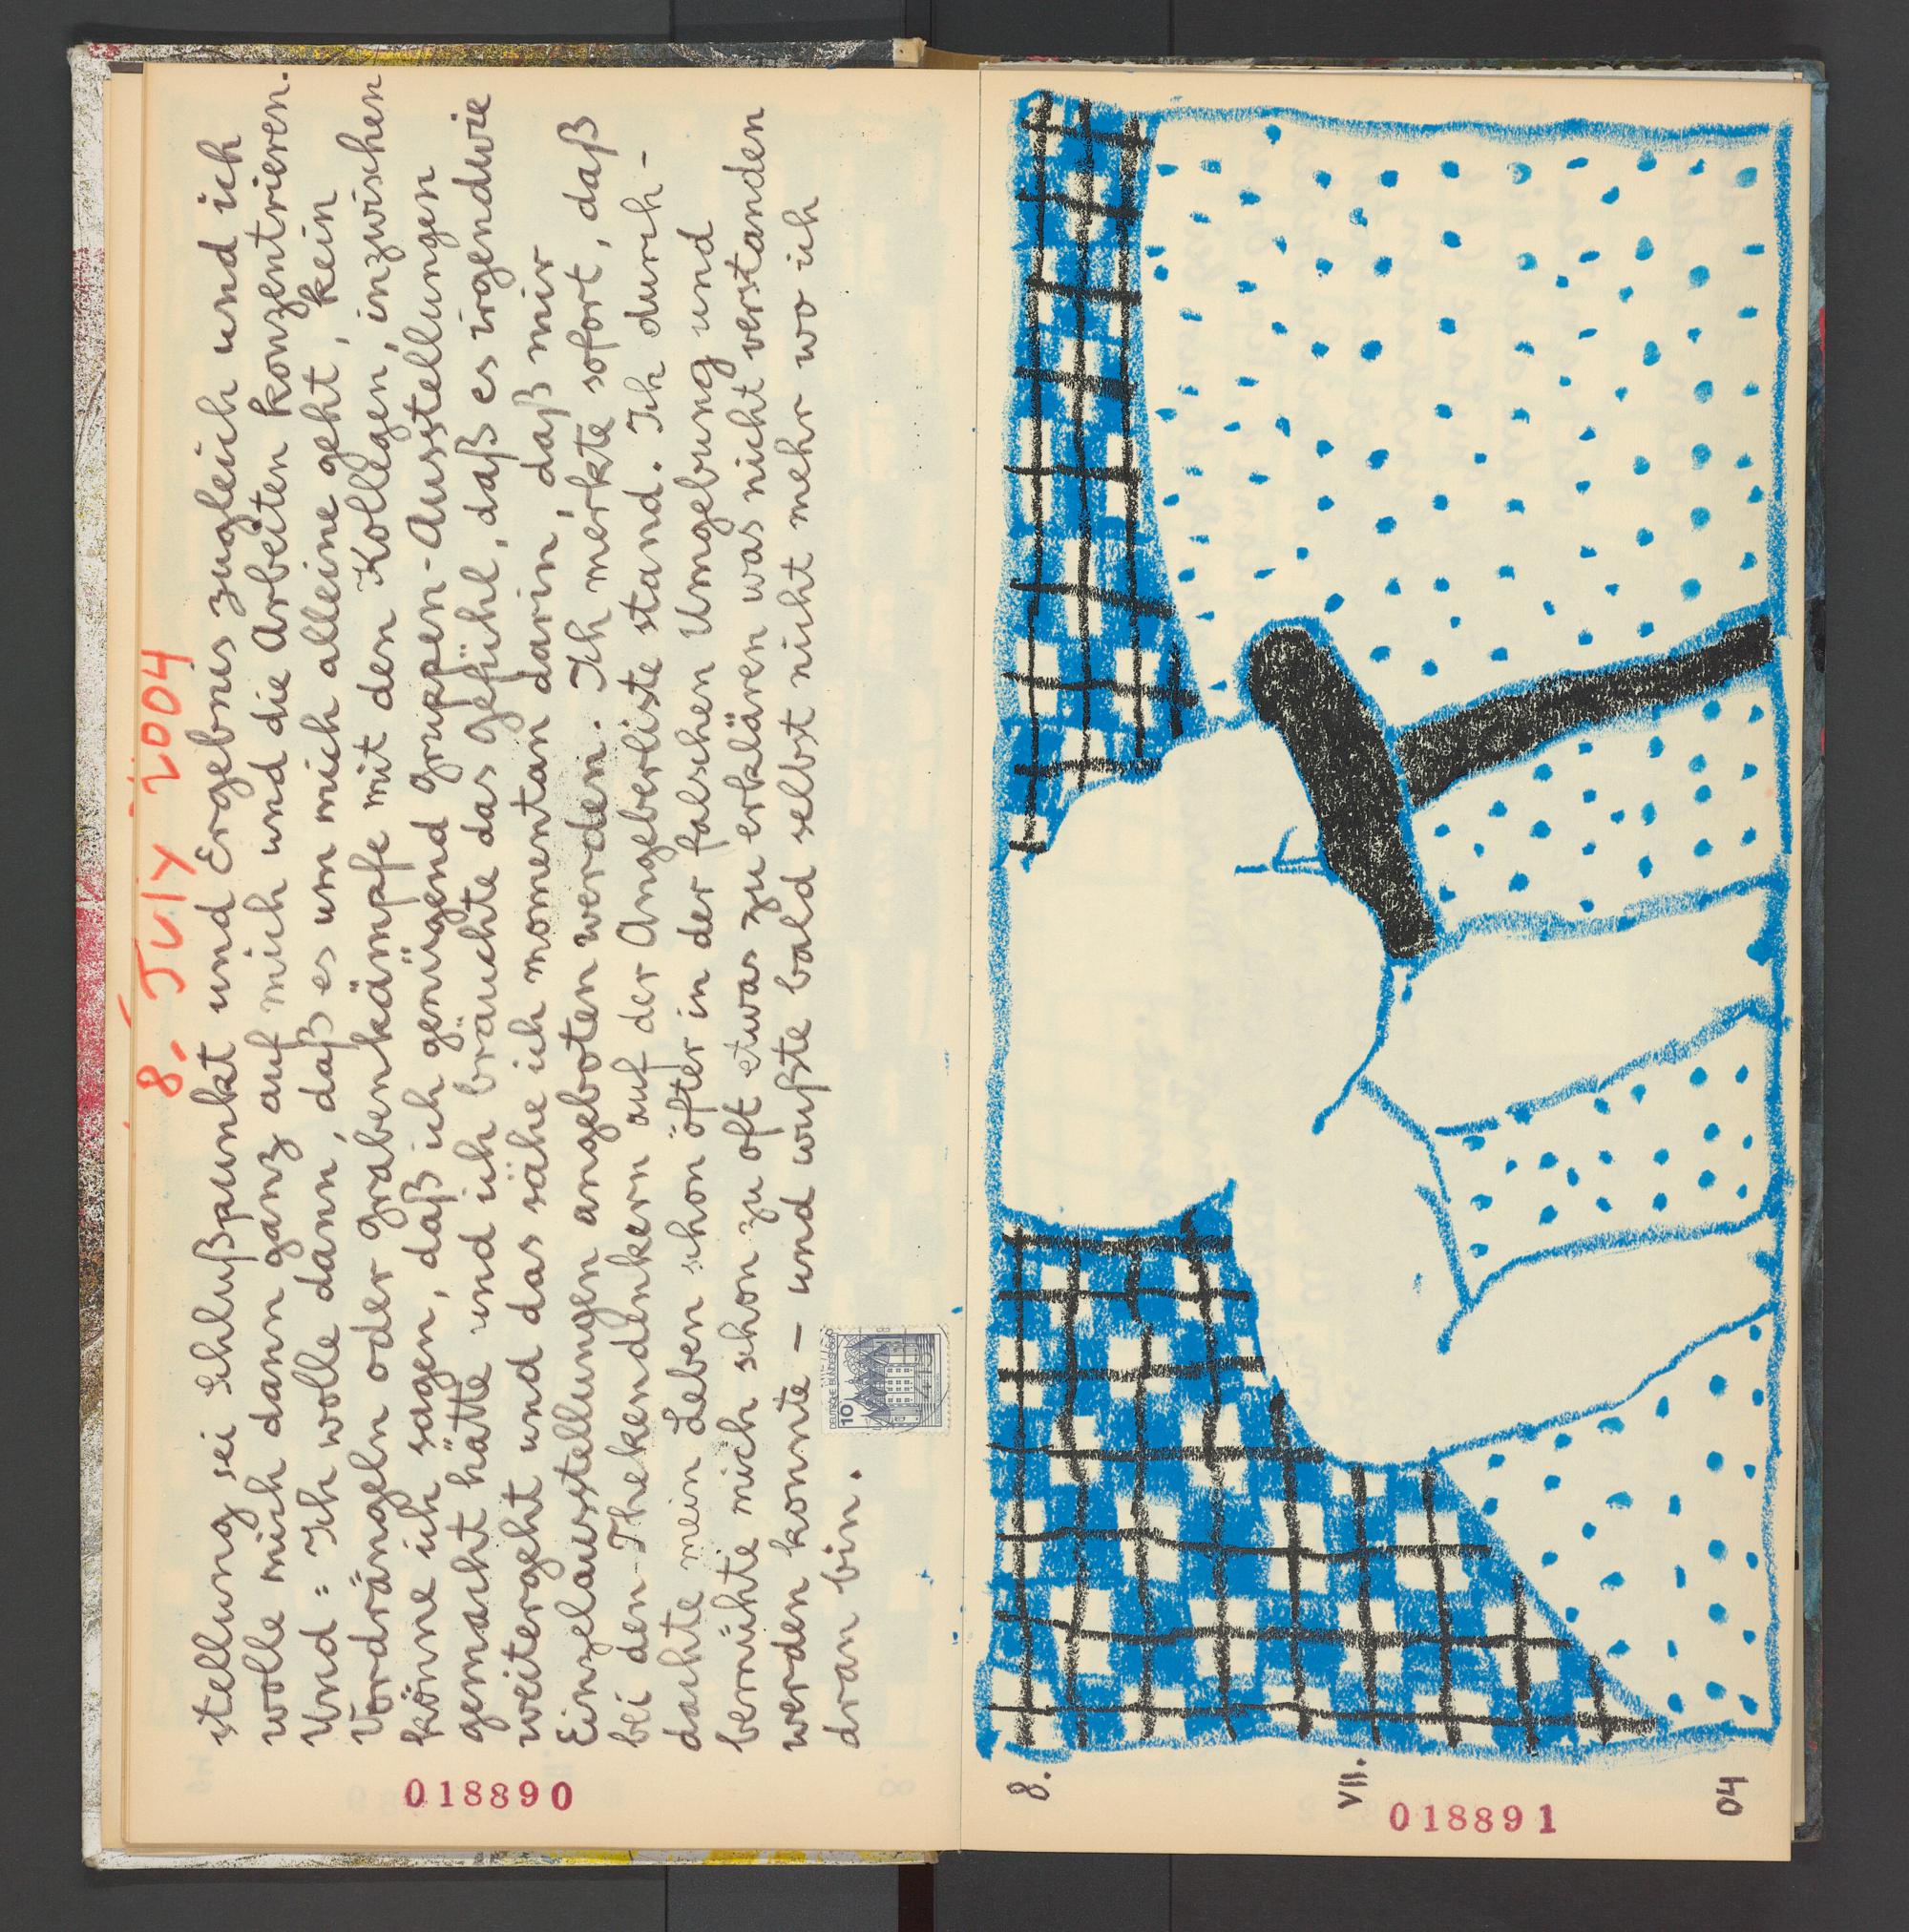 8. July 2004
stellung sei Schlußpunkt und Ergebnis zugleich und ich
wolle mich dann ganz auf mich und die Arbeiten konzentrieren.
Und = Ich wolle dann, daß es um mich alleine geht, kein
Vordrängeln oder Grabenkämpfe mit den Kollegen, inzwischen
könne ich sagen, daß ich genügend Gruppen-Ausstellungen
gemacht hätte und ich bräuchte das Gefühl, daß es irgendwie
weitergeht und das sähe ich momentan darin, daß mir
Einzelausstellungen angeboten werden. Ich merkte sofort, daß
bei den Thekendenkern auf der Angeberliste stand. Ich durch-
dachte mein Leben schon öfter in der falschen Umgebung und
bemühte mich schon zu oft etwas zu erklären was nicht verstanden
werden konnte – und wußte bald selbst nicht mehr wo ich
dran bin.
DEUTSCHE BUNDESPOST
10
018890
8.
VII.
04
018891